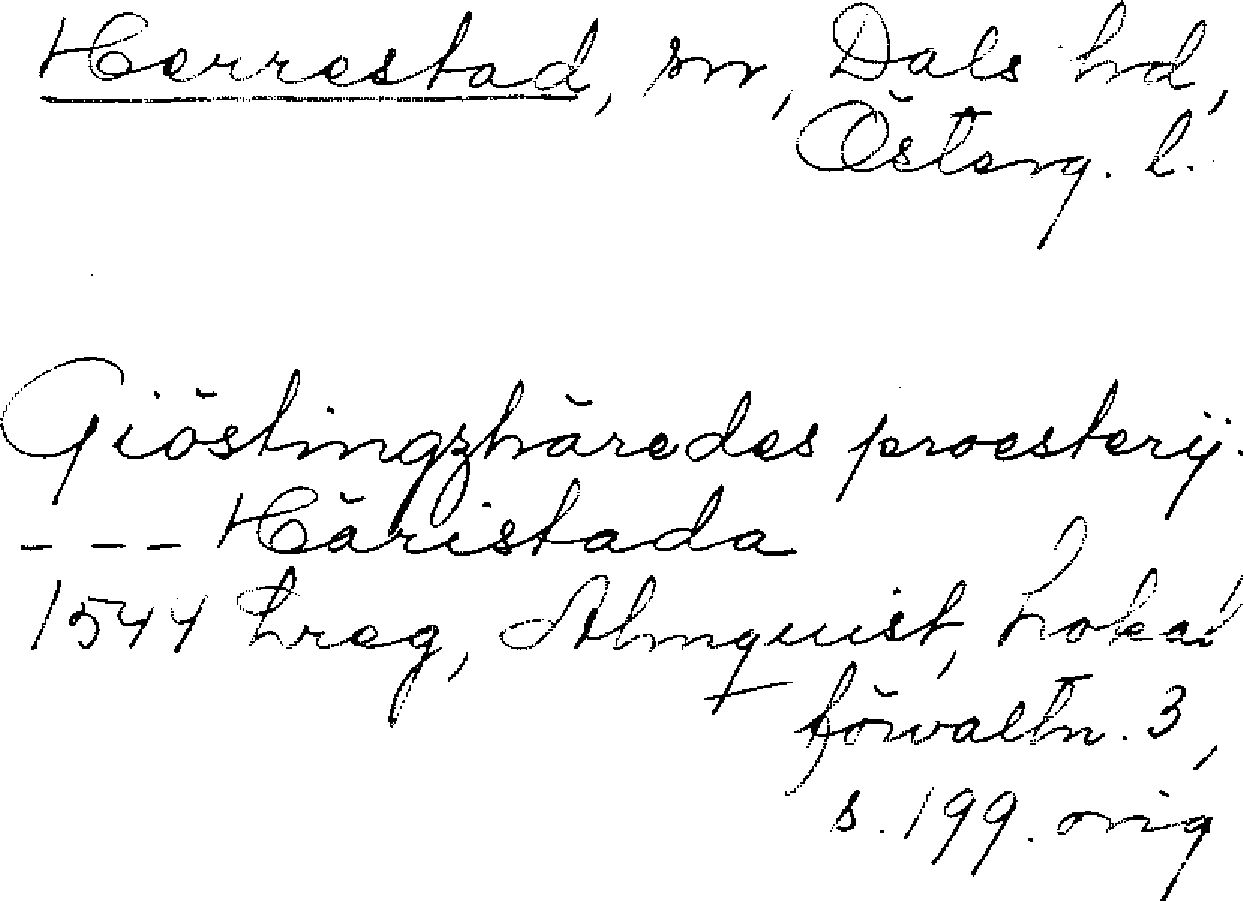 Herrestad, sn, Dals hd,
Österg. l.
Giöstingzhäredes proesterij.
--- Häristada
1544 treg, Almquist, Lokal
förvaltn. 3,
s. 199. orig